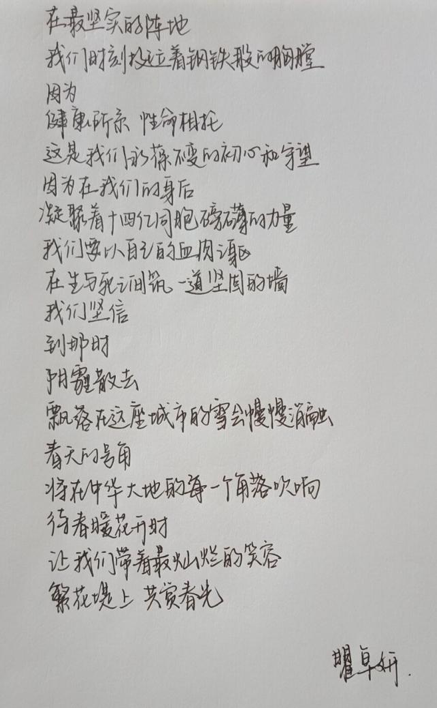 在最坚实的阵地
我们时刻挺立着钢铁般的胸膛
因为
健康所系 性命相托
这是我们永葆不变的初心和守望
因为在我们的身后
凝聚着十四亿同胞磅礴的力量
我们要以自己的血肉之躯
在生与死之间筑一道坚固的墙
我们坚信
到那时
阴霾散去
飘落在这座城市的雪会慢慢消融
春天的号角
将在中华大地的每一个角落吹响
待春暖花开时
让我们带着最灿烂的笑容
繁花堤上 共赏春光
瞿卓妍.